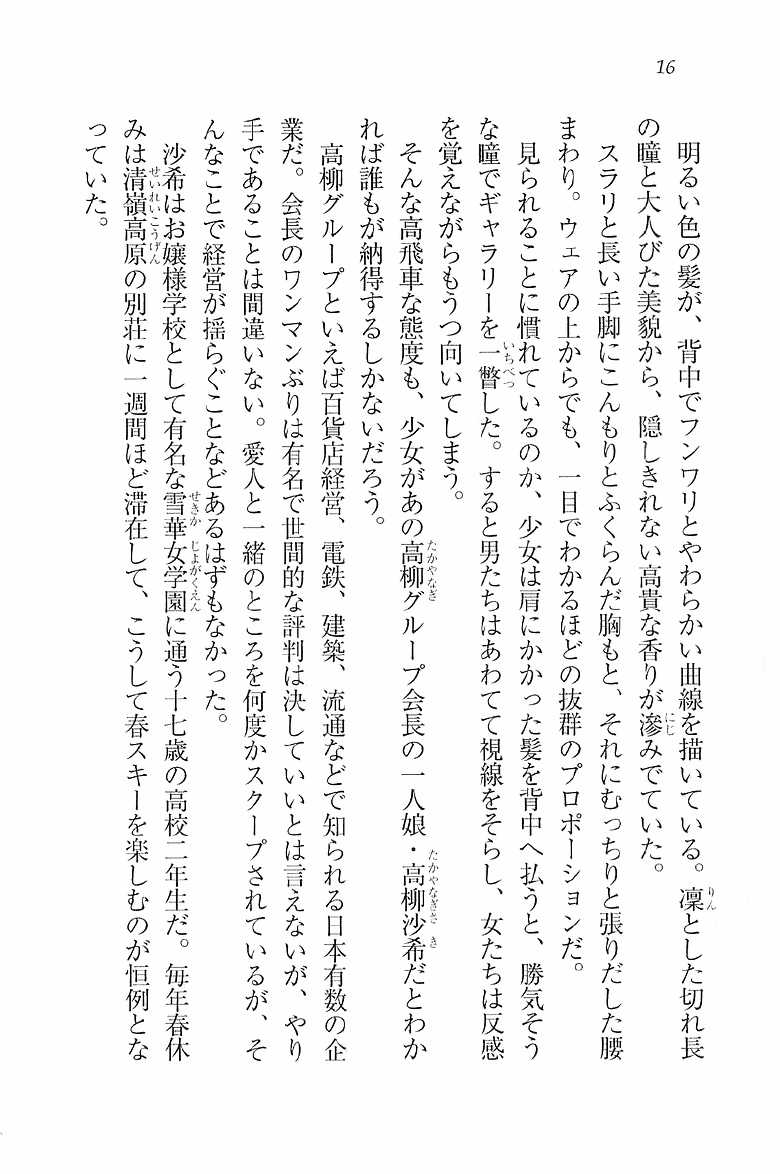 16
明るい色の髪が、背中でフンワリとやわらかい曲線を描いている。凜とした切れ長
の瞳と大人びた美貌から、隠しきれない高貴な香りが滲みでていた。
見られることに慣れているのか、少女は肩にかかった髪を背中へ払うと、勝気そう
な瞳でギャラリーを一瞥した。すると男たちはあわてて視線をそらし、女たちは反感
を覚えながらもうつ向いてしまう。
そんな高飛車な態度も、少女があの高柳グループ会長の一人娘・高柳沙希だとわか
れば誰もが納得するしかないだろう。
高柳グループといえば百貨店経営、電鉄、建築、流通などで知られる日本有数の企
業だ。会長のワンマンぶりは有名で世間的な評判は決していいとは言えないが、やり
手であることは間違いない。愛人と一緒のところを何度かスクープされているが、そ
んなことで経営が揺らぐことなどあるはずもなかった。
沙希はお嬢様学校として有名な雪華女学園に通う十七歳の高校二年生だ。毎年春休
みは清嶺高原の別荘に一週間ほど滞在して、こうして春スキーを楽しむのが恒例とな
っていた。